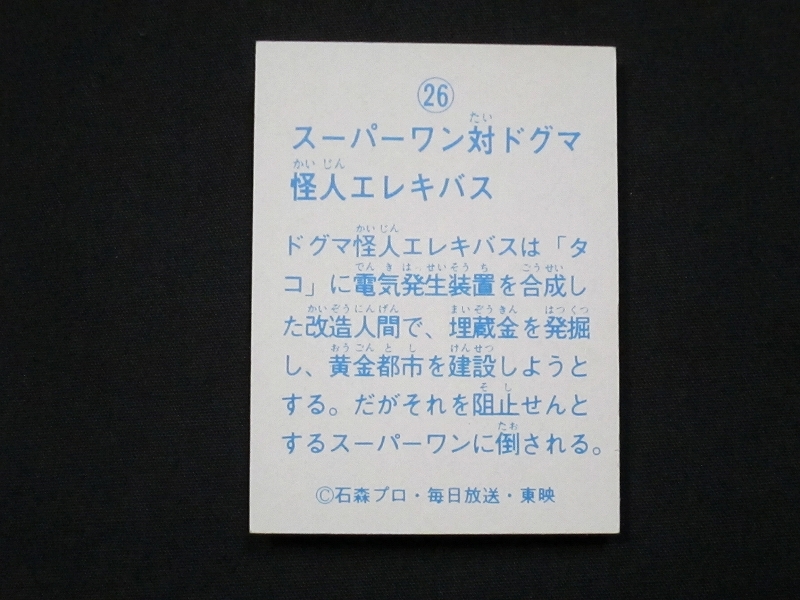 ㉖
スーパーワン対ドグマ
怪人エレキバス
ドグマ怪人エレキバスは「タ
コ」に電気発生装置を合成し
た改造人間で、埋蔵金を発掘
し、黄金都市を建設しようと
する。だがそれを阻止せんと
するスーパーワンに倒される。
©石森プロ・毎日放送・東映